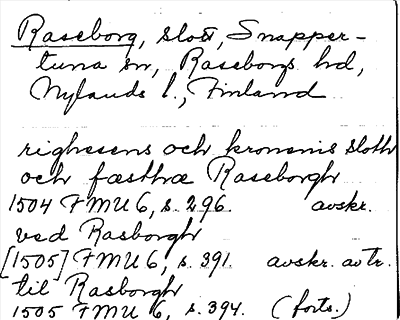 Raseborg, slott, Snapper-
tuna sn, Raseborgs hd,
Nylands l., Finland
righesens och kronenis sloth
och fæsthæ Raseborgh
1504 FMU 6, s. 296. avskr.
ved Rasborgh
[1505] FMU 6, s. 391. avskr. avtr.
til Rasborgh
1505 FMU 6, s. 394. (forts.)